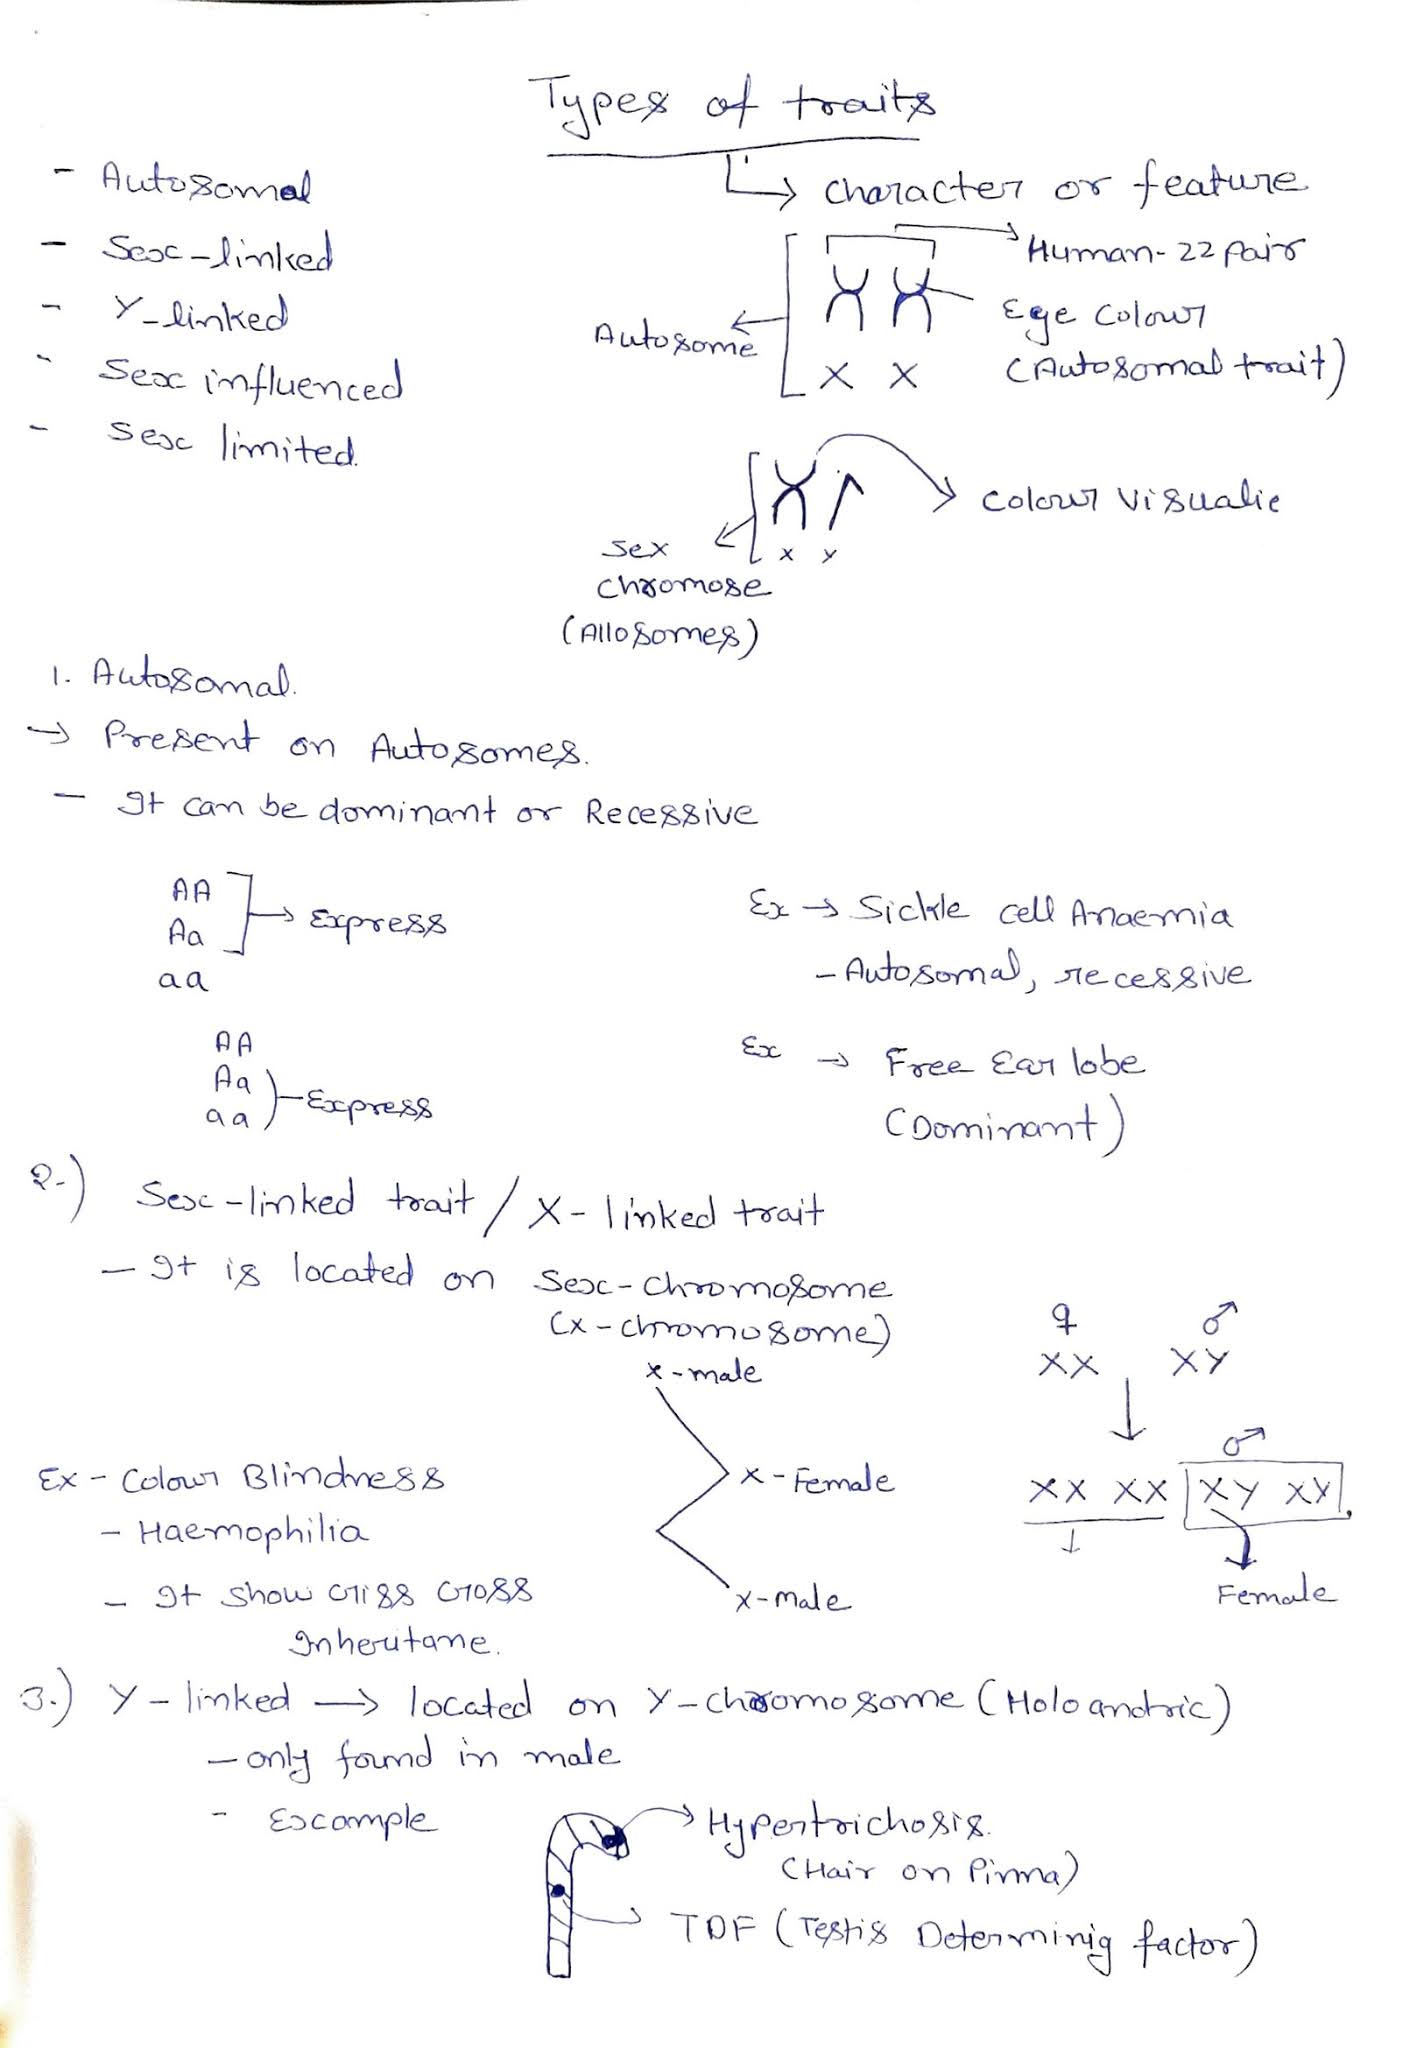 Types of traits
- Autosomal
- Sex-linked
- Y-linked
- Sex influenced
- Sex limited.
character or feature
Human-22 pair
Eye Colour
(Autosomal trait)
Autosome
X X
Colour Visualie
Sex
chromose
(Allosomes)
x y
1. Autosomal.
→ Present on Autosomes.
- It can be dominant or Recessive
AA
Aa
→ Express
aa
Ex → Sickle cell Anaemia
- Autosomal, recessive
AA
Aa
aa
Express
Ex → Free Ear lobe
(Dominant)
2.) Sex-linked trait / X-linked trait
- It is located on Sex-Chromosome
(x-chromosome)
x-male
x-Female
x-male
♀ ♂
XX XY
♂
XX XX XY XY
Female
Ex - Colour Blindness
- Haemophilia
- It show criss cross
Inheritane.
3.) Y-linked → located on Y-chromosome (Holoandric)
- only found in male
- Example
Hypertrichosis.
(Hair on Pinna)
TDF (Testis Determinig factor)